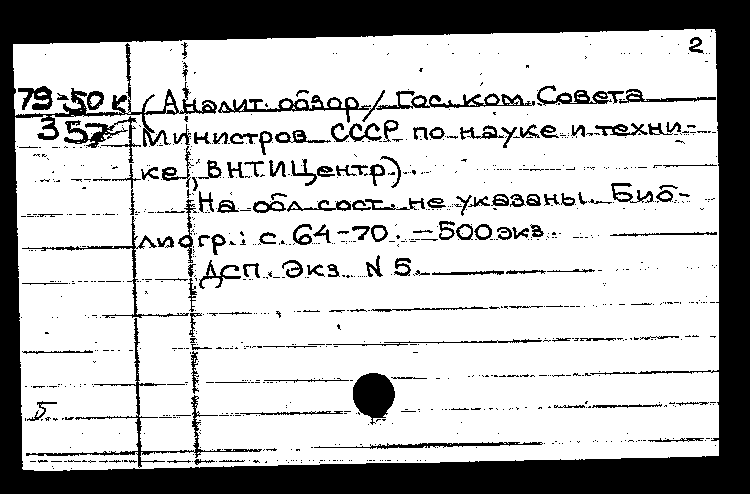 2
79-50 к (Аналит. обзор / Гос. ком. Совета
357 Министров СССР по науке и техни-
ке, ВНТИЦентр).
На обл. сост. не указаны. Биб-
лиогр.: с. 64-70. - 500 экз.
ДСП. Экз. N 5.
Б